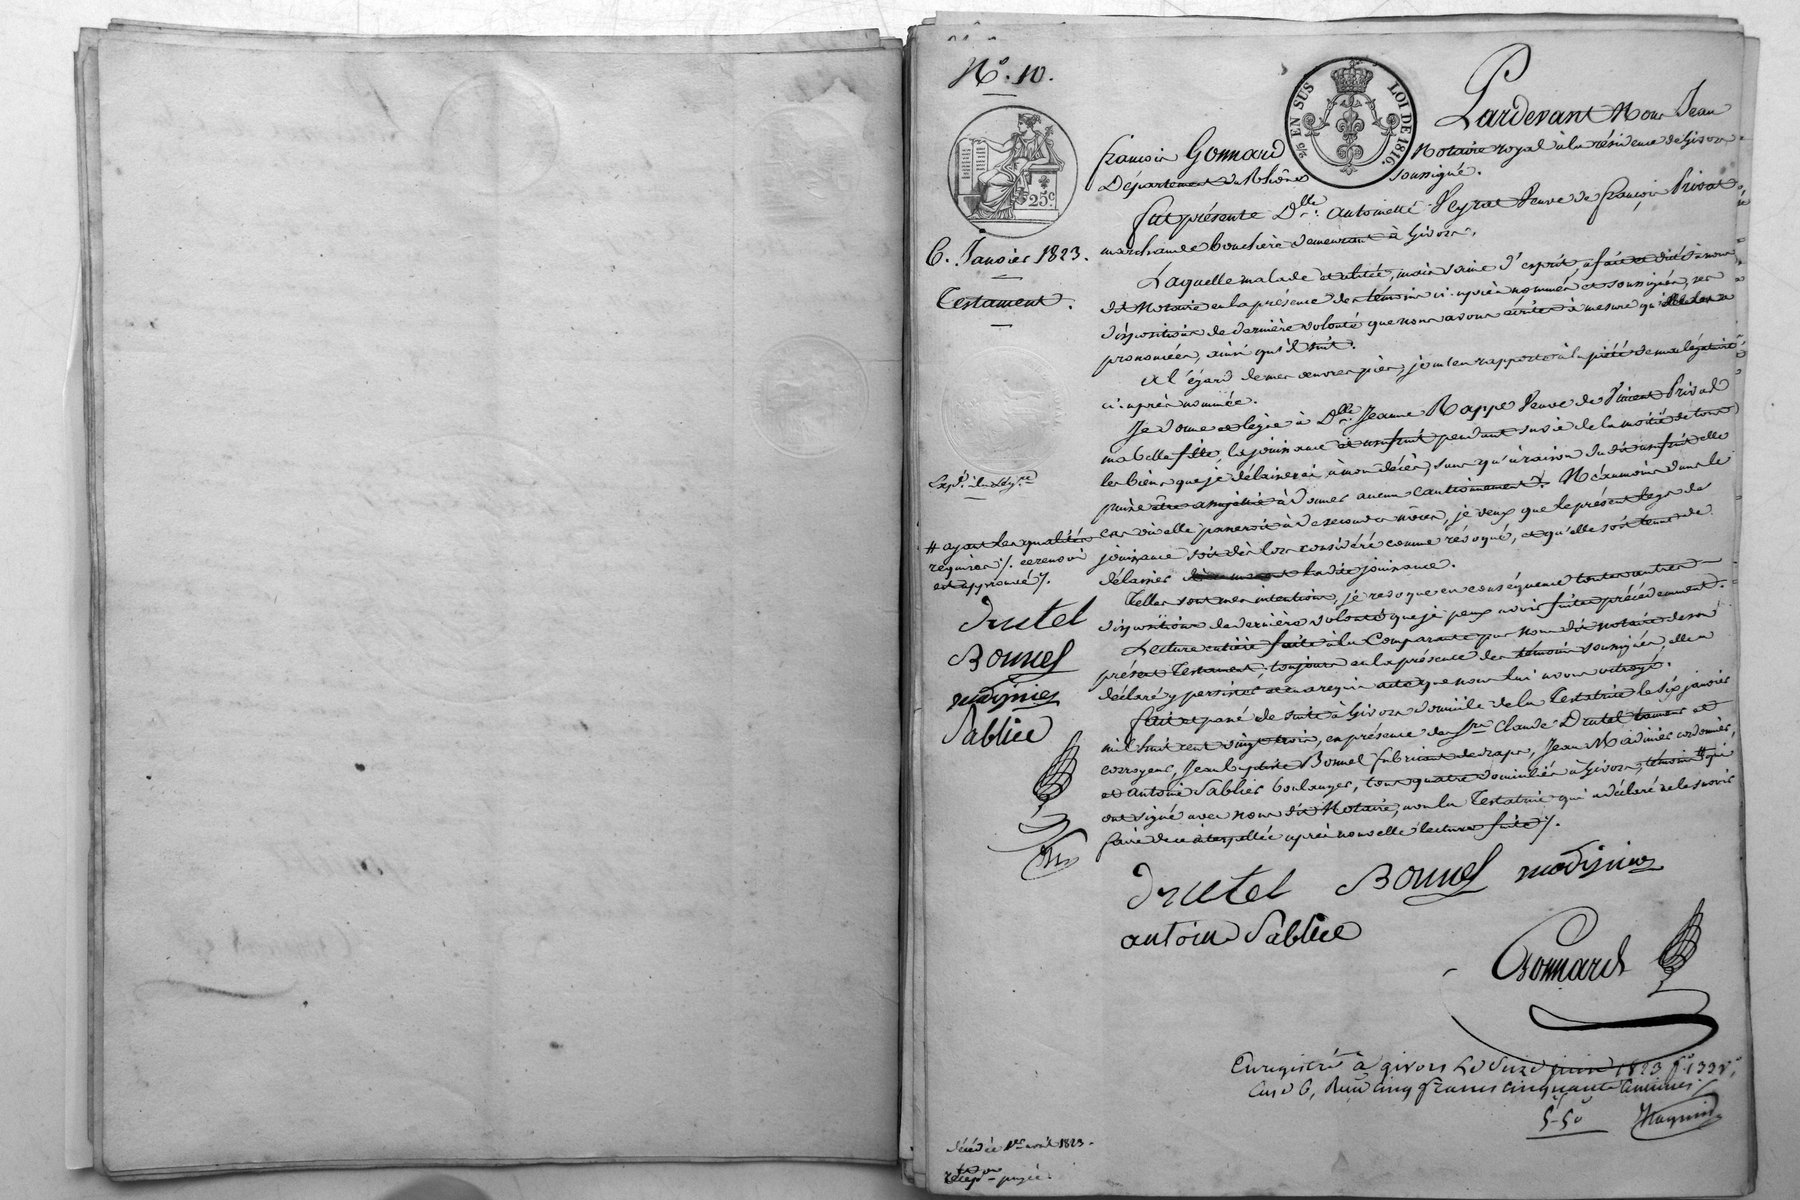 N.° 10.
EN SUS
LOI DE 1816.
25c
Pardevant Nous Jean
françois Gonnard Notaire royal à la résidence de Givors
Département du Rhône soussigné.
fut présente D.lle Antoinette Peyrat Veuve de françois Privat
marchande bouchère demeurant à Givors.
6. Janvier 1823.
Testament.
Laquelle malade et alitée, mais saine d'esprit, a fait et dicté à nous
dit Notaire en la présence des témoins ci-après nommés et soussignés, ses
dispositions de dernière volonté que nous avons écrites à mesure qu'elle les a
prononcées, ainsi qu'il suit.
A l'égard de mes œuvres pies, je m'en rapporte à la piété de ma légataire
ci-après nommée.
Je donne et lègue à D.lle Jeanne Rappe Veuve de Vincent Privat
ma belle fille, la jouissance et usufruit pendant sa vie de la moitié de tous
les biens que je délaisserai à mon décès, sans qu'à raison du dit usufruit elle
puisse être assujettie à donner aucun cautionnement. Néanmoins dans le
cas où elle passeroit à de secondes nôces, je veux que le présent legs de
jouissance soit dès lors considéré comme révoqué, et qu'elle soit tenue de
délaisser ladite jouissance.
Telles sont mes intentions, je révoque en conséquence toutes autres
dispositions de dernière volonté que je peux avoir faites précédemment.
Lecture entière faite à la Comparante par nous dit notaire de son
présent Testament, toujours en la présence des témoins soussignés, elle a
déclaré y persister et en a requis acte que nous lui avons octroyé.
fait et passé de suite à Givors domicile de la Testatrice le six janvier
mil huit cent vingt trois, en présence de Srs Claude Drutel tanneur et
corroyeur, Jean Baptiste Bonnel fabricant de draps, Jean Madinier cordonnier,
et Antoine Sablier boulanger, tous quatre domiciliés à Givors, témoins # qui
ont signé avec nous dit Notaire, non la Testatrice qui a déclaré ne le savoir
faire de ce interpellée après nouvelle lecture faite ./.
# ayant les qualités
requises ./. ce renvoi
est approuvé ./.
Drutel
Bonnel
madinier
Sablier
Drutel Bonnel madinier
antoine Sablier
Gonnard
Enregistré à givors Le onze juin 1823
Case 6, Reçu cinq francs cinquante centimes
5-50
décédée 1er avril 1823.
payée.